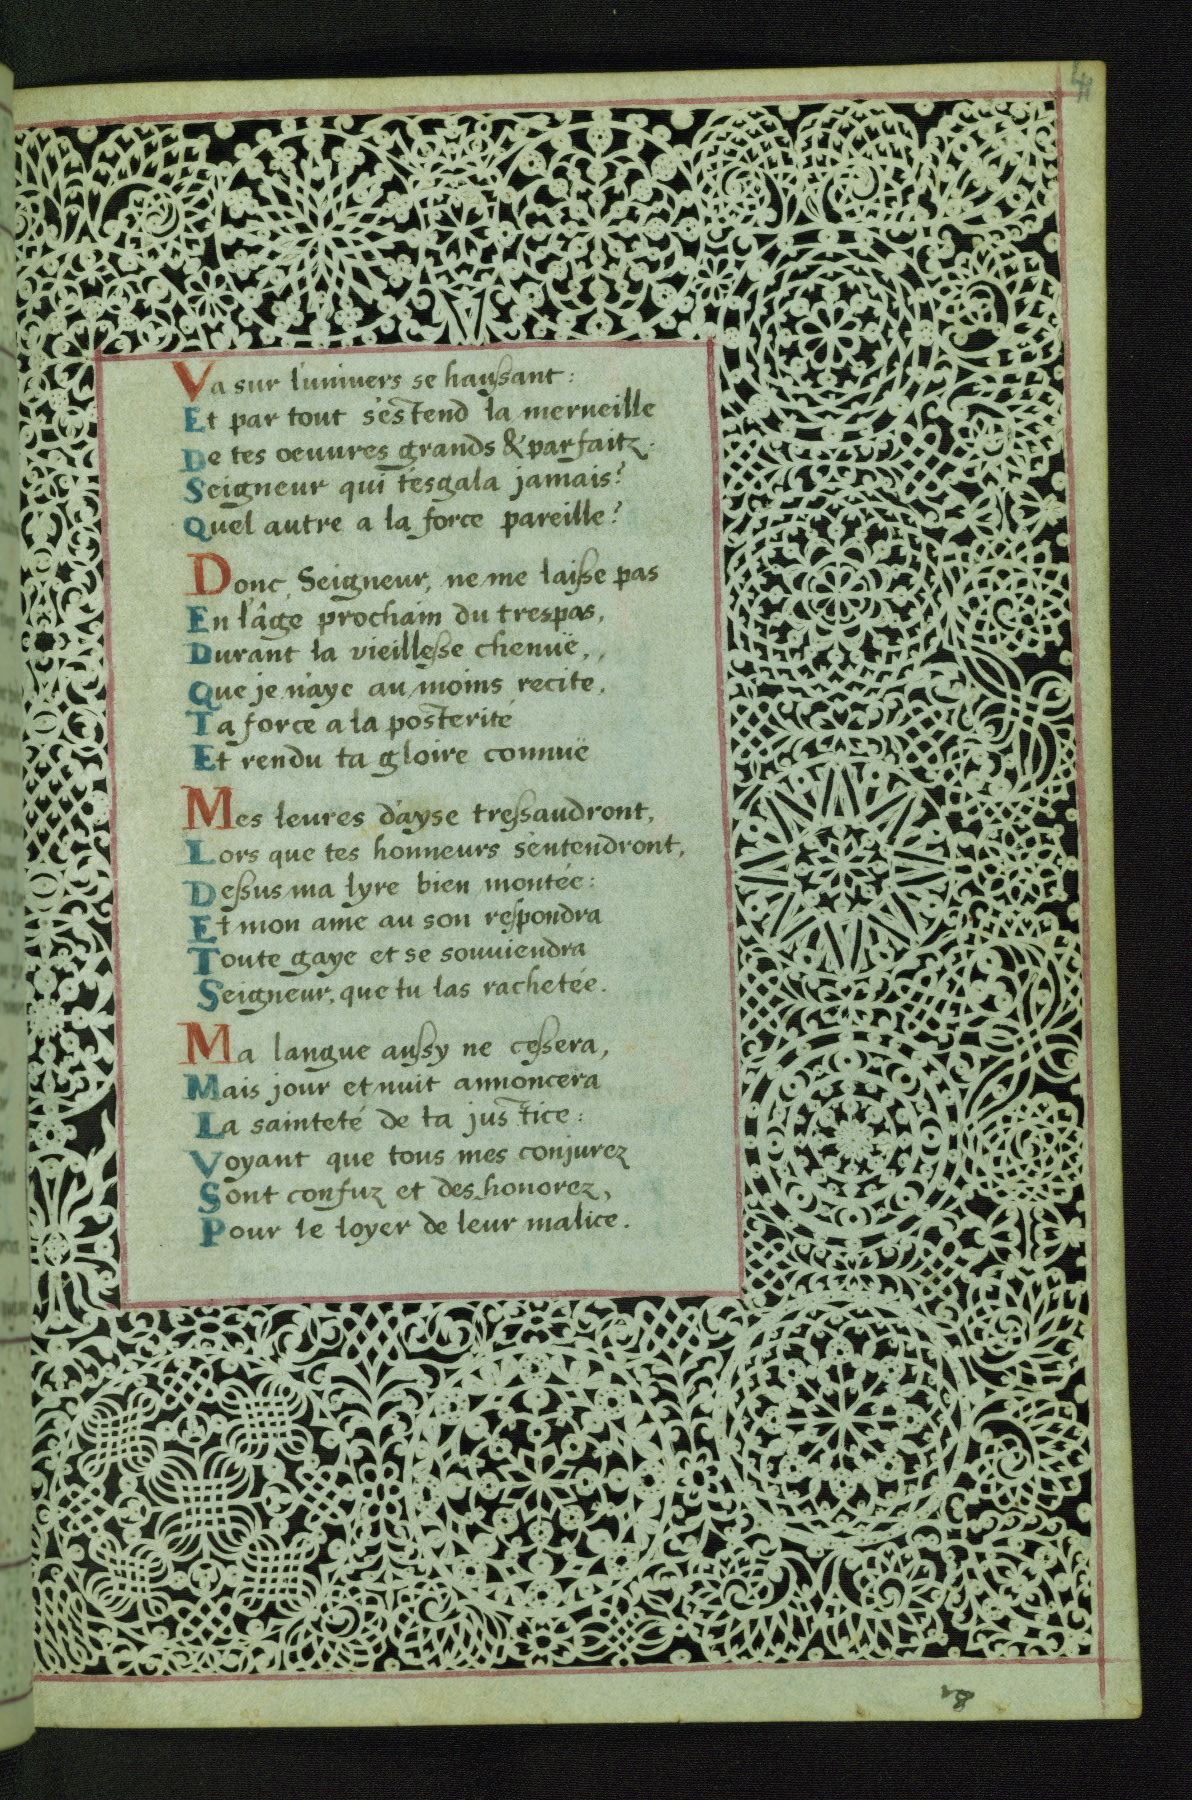 Va sur l'univers se haussant:
Et par tout s'estend la merveille
De tes oeuvres grands & parfaitz.
Seigneur qui t'esgala jamais?
Quel autre a la force pareille?
Donc, Seigneur, ne me laisse pas
En l'âge prochain du trespas,
Durant la vieillesse chenuë,
Que je n'aye au moins recité,
Ta force a la posterité
Et rendu ta gloire connuë
Mes levres d'ayse tressaudront,
Lors que tes honneurs s'entendront,
Dessus ma lyre bien montée:
Et mon ame au son respondra
Toute gaye et se souviendra
Seigneur, que tu l'as rachetée.
Ma langue aussy ne cessera,
Mais jour et nuit annoncera
La sainteté de ta justice:
Voyant que tous mes conjurez
Sont confuz et deshonorez,
Pour le loyer de leur malice.